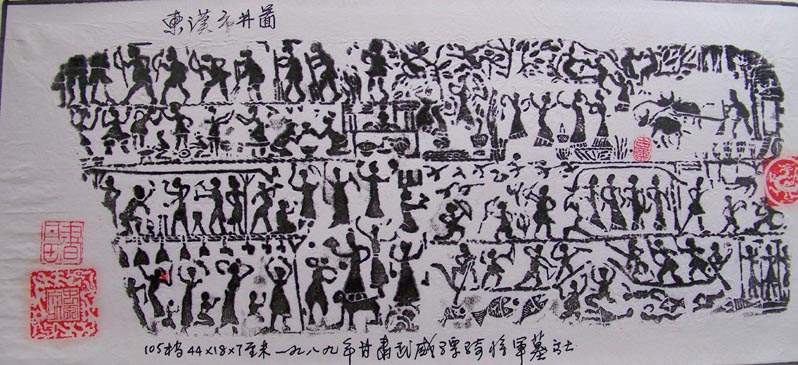 東漢市井圖
105档44×18×7厘米一九八九年甘肅武威骠骑将軍墓出土